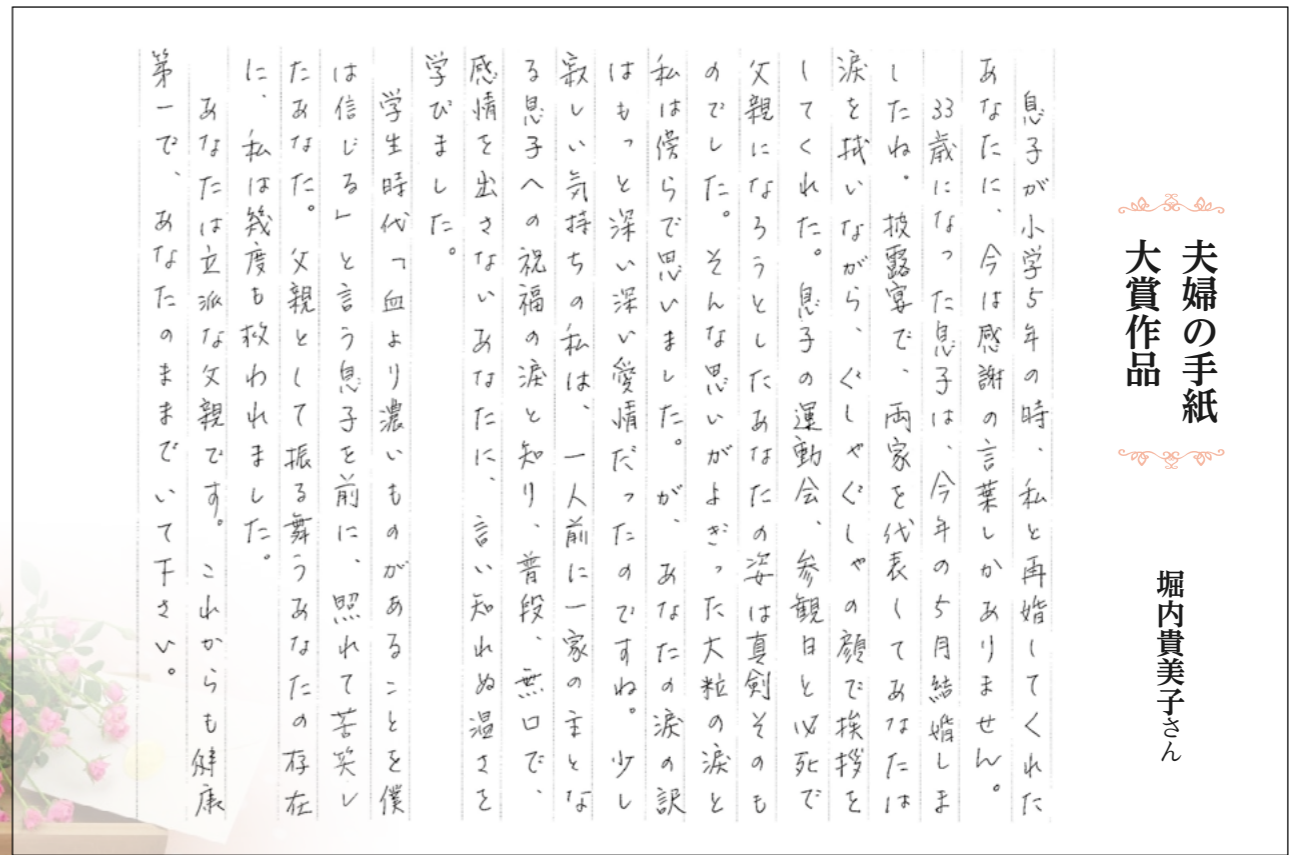 夫婦の手紙
大賞作品
堀内貴美子さん
息子が小学5年の時、私と再婚してくれた
あなたに、今は感謝の言葉しかありません。
33歳になった息子は、今年の5月結婚しま
したね。披露宴で、両家を代表してあなたは
涙を拭いながら、ぐしゃぐしゃの顔で挨拶を
してくれた。息子の運動会、参観日と必死で
父親になろうとしたあなたの姿は真剣そのも
のでした。そんな思いがよぎった大粒の涙と
私は傍らで思いました。が、あなたの涙の訳
はもっと深い深い愛情だったのですね。少し
寂しい気持ちの私は、一人前に一家の主とな
る息子への祝福の涙と知り、普段、無口で、
感情を出さないあなたに、言い知れぬ温さを
学びました。
学生時代「血より濃いものがあることを僕
は信じる」と言う息子を前に、照れて苦笑し
たあなた。父親として振る舞うあなたの存在
に、私は幾度も救われました。
あなたは立派な父親です。これからも健康
第一で、あなたのままでいて下さい。